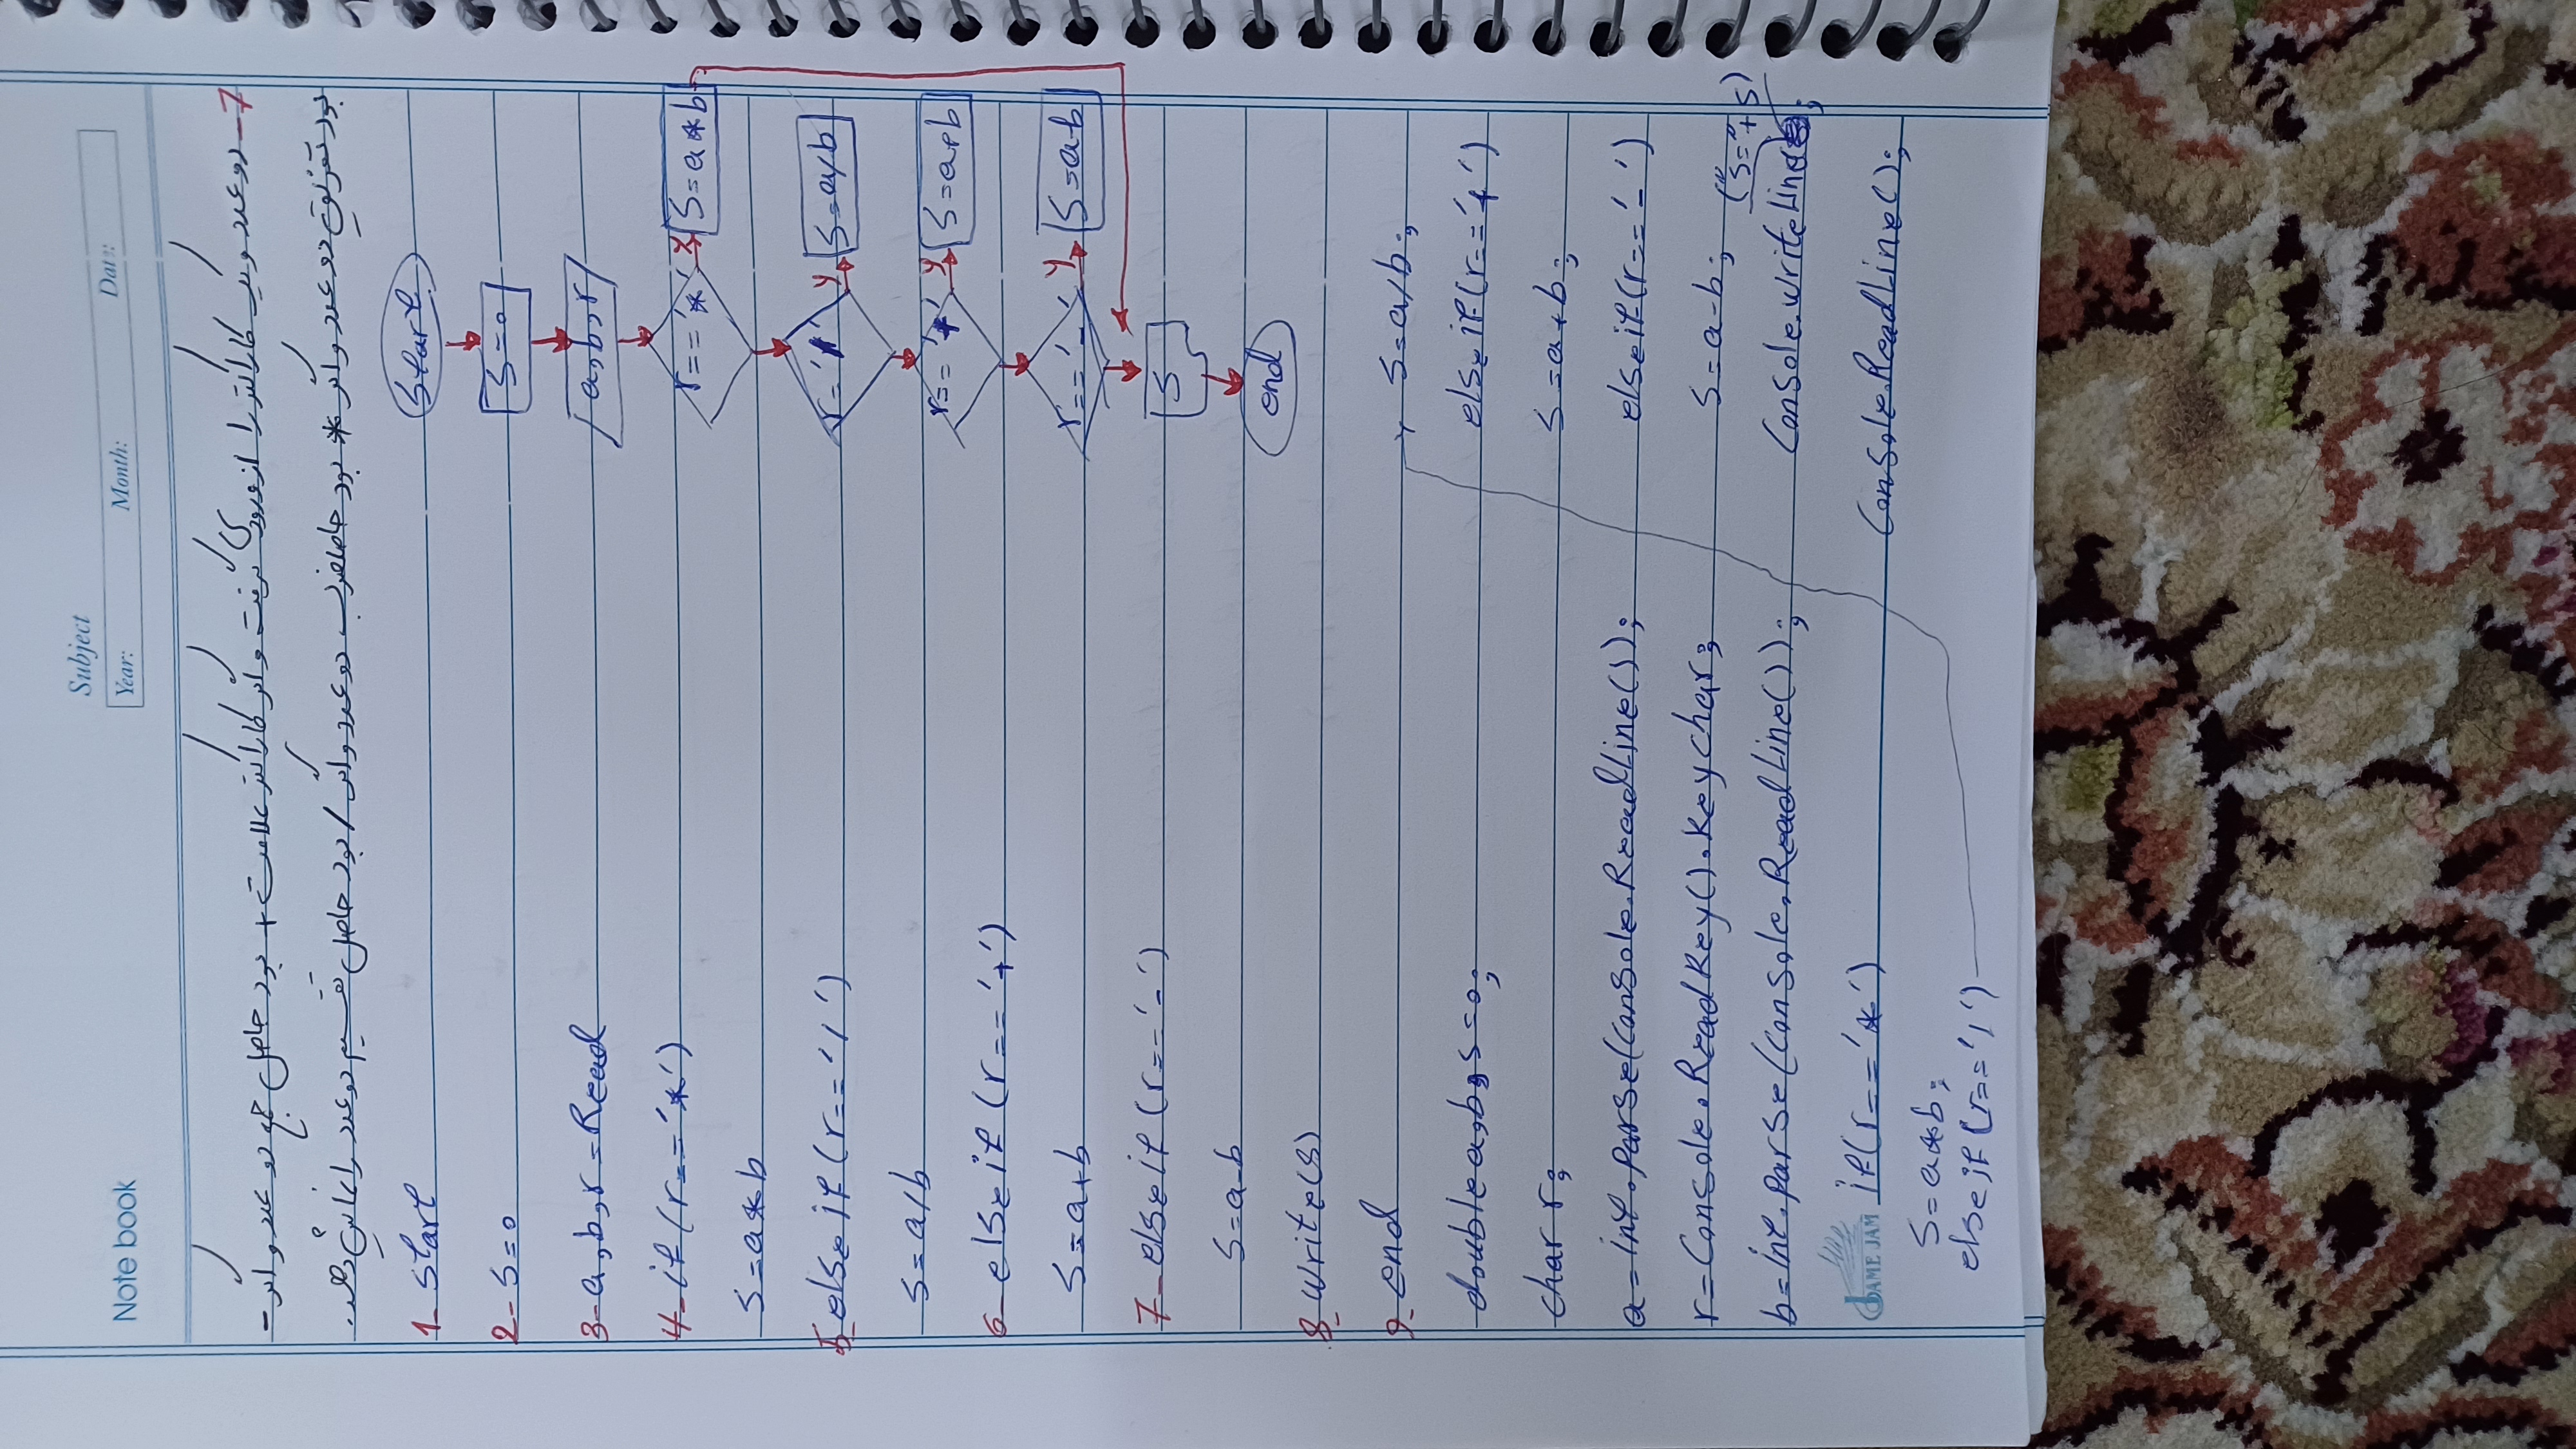 Note book
Subject
Year:
Month:
Date:
7- دو عدد و یک کاراکتر را از ورودی گرفته و اگر کاراکتر علامت + بود حاصل جمع دو عدد و اگر -
بود تفریق دو عدد و اگر * بود حاصلضرب دو عدد و اگر / بود حاصل تقسیم دو عدد را نمایش دهد.
1- Start
2- S=0
3- a,b,r=Read
4- if(r=='*')
S=a*b
5- elseif(r=='/')
S=a/b
6- elseif(r=='+')
S=a+b
7- elseif(r=='-')
S=a-b
8- write(S)
9- end
Start
S=0
a,b,r
r=='*'
Y
S=a*b
r='/'
Y
S=a/b
r=='+'
Y
S=a+b
r=='-'
Y
S=a-b
S
end
double a,b,s=0;
char r;
a=int.Parse(Console.ReadLine());
r=Console.ReadKey().Keychar;
b=int.Parse(Console.ReadLine());
if(r=='*')
S=a*b;
elseif(r=='/')
S=a/b;
elseif(r=='+')
S=a+b;
elseif(r=='-')
S=a-b;
Console.writeLine("S="+S);
Console.ReadLine();
JAME JAM